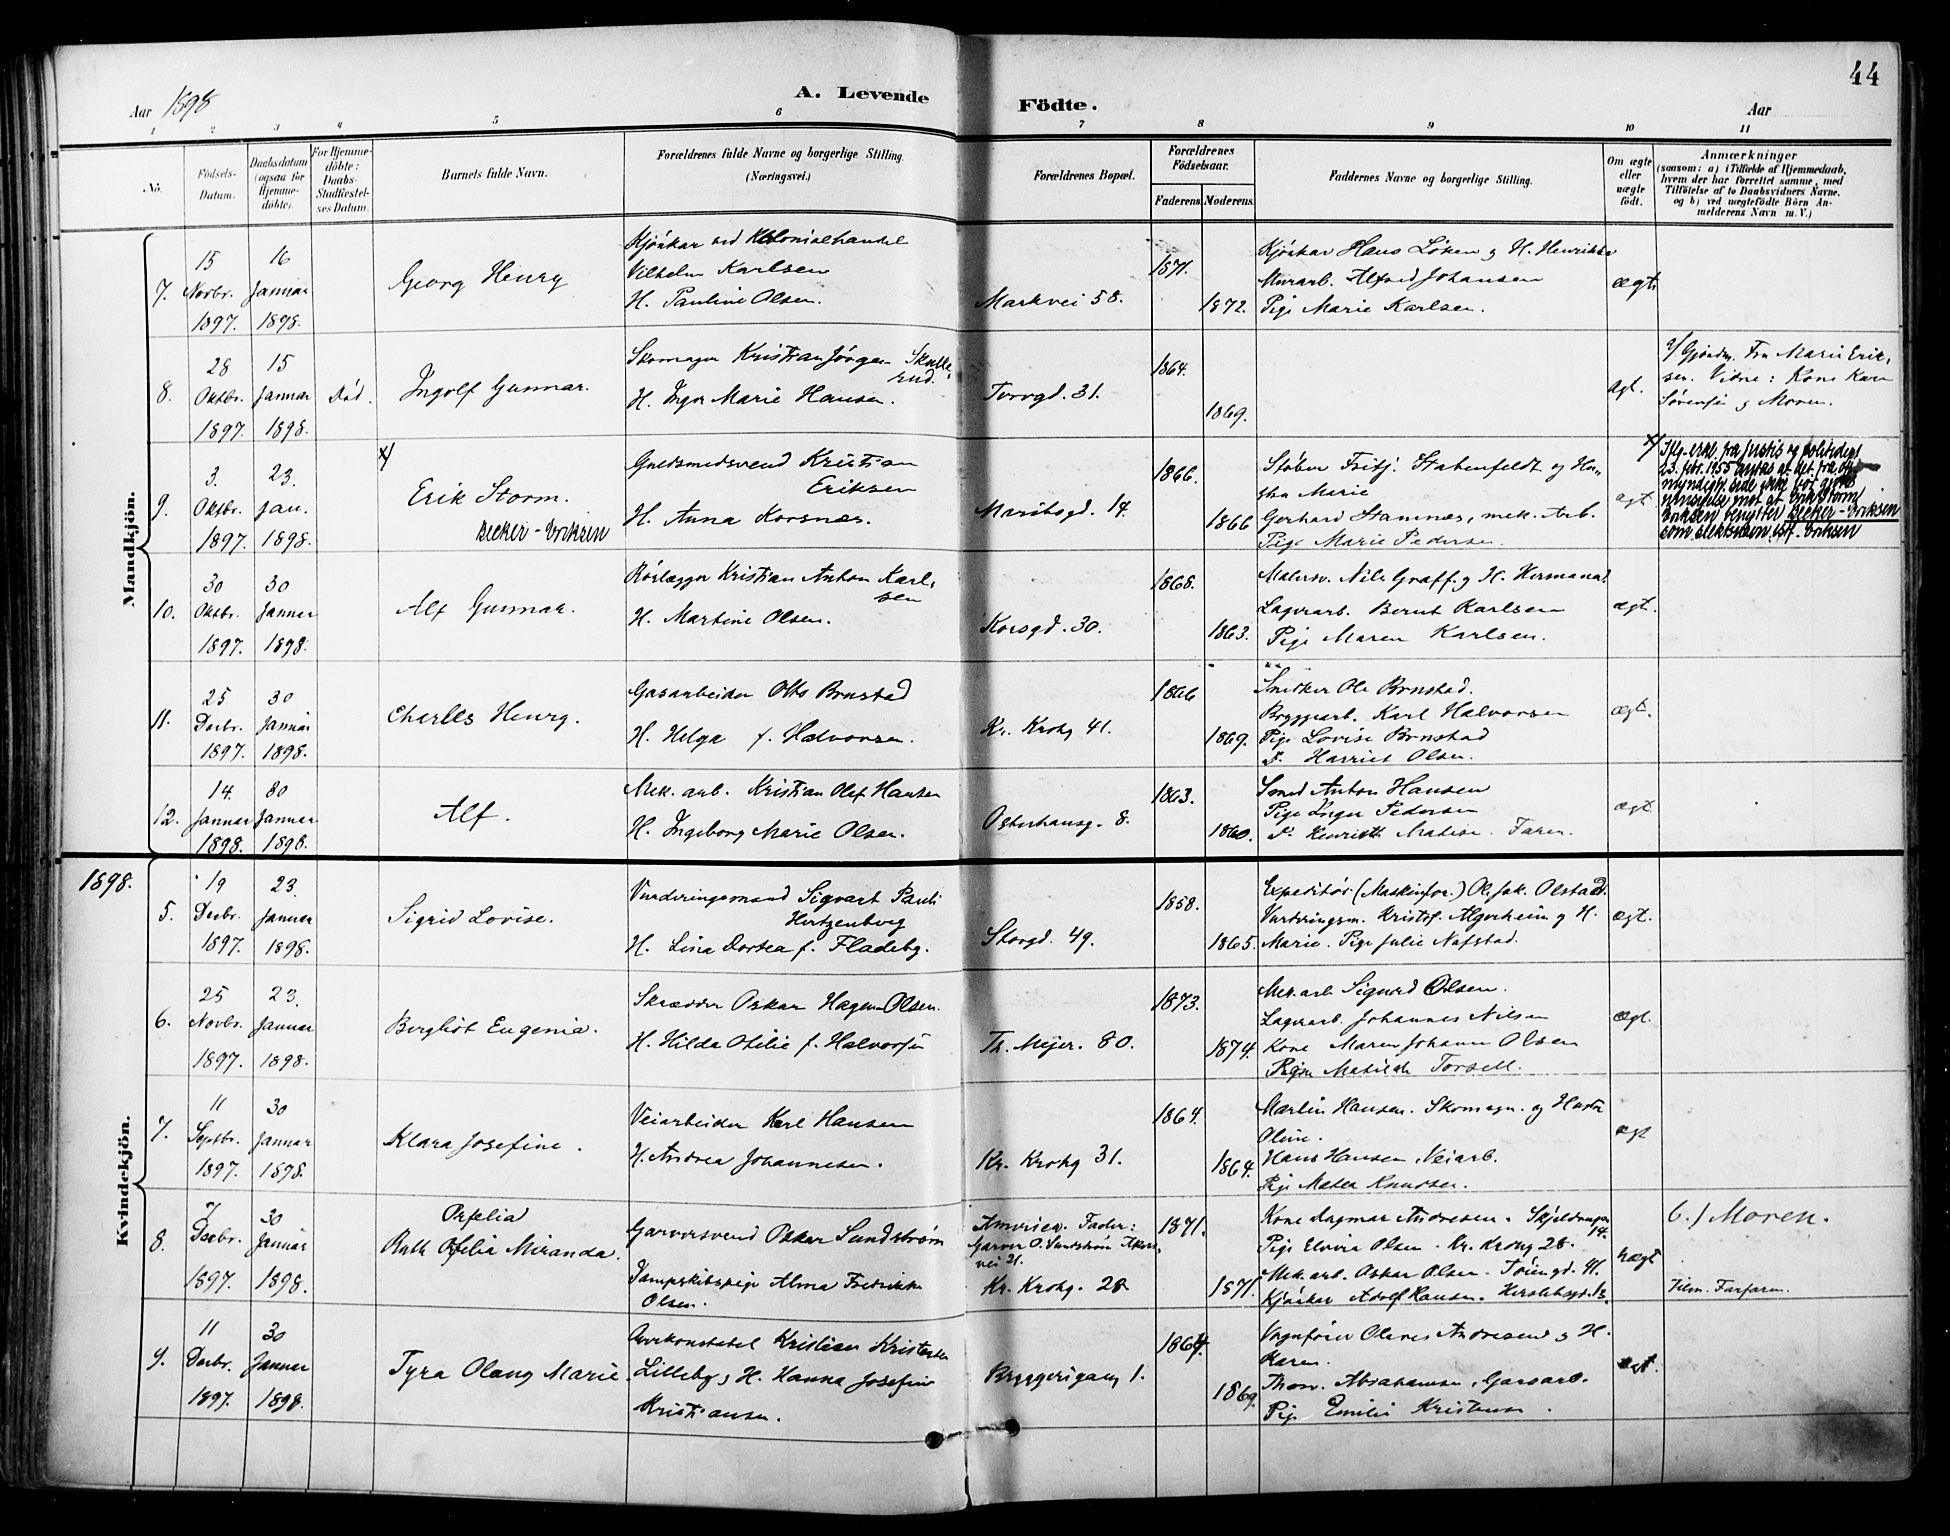 44
Aar 1898
A. Levende Födte.
Aar
1 2 3 4 5 6 7 8 9 10 11
No.
Födsels-Datum.
Daabsdatum (ogsaa for Hjemme-döbte)
For Hjemme-döbte: Daabs-Stadfæstel-ses Datum.
Barnets fulde Navn.
Forældrenes fulde Navne og borgerlige Stilling. (Næringsvei.)
Forældrenes Bopæl.
Forældrenes Födselsaar.
Faderens. Moderens.
Faddernes Navne og borgerlige Stilling.
Om ægte eller uægte födt.
Anmærkninger
(saasom: a) i Tilfælde af Hjemmedaab,
hvem der har forrettet samme, med
Tilföielse af to Daabsvidners Navne,
og b) ved uægtefödte Börn An-
melderens Navn m. V.)
Mandkjön.
7.
15 Novbr. 1897.
16 Januar 1898.
Georg Henry
Kjöskar ved Kolonialhandel
Vilhelm Karlsen
H. Pauline Olsen.
Markvei 58.
1871.
1872.
Kjöskar Hans Löken g H. Henrikke
Murarb. Alfred Johansen
Pige Marie Karlsen.
ægte
8.
28 Oktbr. 1897.
15 Januar 1898.
Död.
Ingolf Gunnar.
Skomager Kristian Jörgen Skulle-
rud.
H. Inga Marie Hansen.
Torvgd. 31.
1864.
1869.
ægt.
a/ Gjordm. Fru Marie Erik-
sen. Vidne: Kone Karn
Sörensen g Moren.
9.
3. Oktbr. 1897.
23. Jan. 1898.
x/
Erik Storm.
Becker-Eriksen
Guldsmedsvend Kristian
Eriksen
H. Anna Korsnæs.
Maribogd. 14.
1866.
1866
Stöber Fritj. Stabenfeldt og Hu-
stru Marie
Gerhard Stamnæs, mek. Arb.
Pige Marie Pedersen.
ægt
x/ Iflg. erkl. fra Justis og politidept
23. febr. 1955 antas at det fra off.
myndigh. side ikke bör gjöres
innsigelse mot at Erik Storm
Eriksen benytter Becker-Eriksen
som slektsnavn istf. Eriksen
10.
30 Oktbr. 1897.
30 Januar 1898.
Alf Gunnar.
Rörlægger Kristian Anton Karl-
sen
H. Martine Olsen.
Korsgd. 30.
1868.
1863.
Malersv. Nils Graff g H. Hermana.
Lagerarb. Bernt Karlsen
Pige Maren Karlsen.
ægt.
11.
25 Decbr. 1897.
30 Januar 1898.
Charles Henry.
Gasarbeider Otto Brnstad
H. Helga f. Halvorsen.
Kr. Krohg 41.
1866
1869.
Snedker Ole Brnstad.
Bryggearb. Karl Halvorsen
Pige Lovise Brnstad
D. Harriet Olsen.
ægt.
12.
14. Januar 1898.
30 Januar 1898.
Alf.
Mek. arb. Kristian Olaf Hansen
H. Ingeborg Marie Olsen.
Osterhausg. 8.
1863.
1860.
Smed Anton Hansen
Pige Inger Pedersen
D. Henriette Matise Faren.
ægt
1898.
Kvindekjön.
5.
19 Decbr. 1897.
23. Januar 1898.
Sigrid Lovise.
Vurderingsmand Sigvart Pauli
Hertzenberg
H. Lina Dortea f. Fladeby.
Storgd. 49.
1858.
1865.
Expeditör (Maskinfor.) Ol. Jak. Olstad.
Vurderingsm. Kristof. Algerheim g H.
Marie. Pige Julie Nafstad.
ægt.
6.
25 Novbr. 1897.
23. Januar 1898.
Bergliot Eugenia.
Skrædder Oskar Hagen Olsen.
H. Hilda Otilie f. Halvorsen
Th. Mejer. 80.
1873.
1874.
Mek. arb. Sigurd Olsen.
Lagerarb. Johannes Nilsen
Kone Maren Johanne Olsen
Pige Matilde Torsell.
ægt.
7.
11 Septbr. 1897.
30 Januar 1898.
Klara Josefine.
Veiarbeider Karl Hansen
H. Andrea Johannesen.
Kr. Krohg 31.
1864.
1864.
Martin Hansen. Skomagr. og Hustr
Oline.
Hans Hansen, Veiarb.
Pige Matea Knudsen.
ægt
8.
7 Decbr. 1897.
30 Januar 1898.
Ofelia
Ruth Ofelia Miranda.
Garversvend Oskar Sundström
Dampskibspige Alma Fredrikke
Olsen.
Amerika. Fader:
Garver O. Sundström Aker-
vei 21.
Kr. Krohg. 28
1871.
1871.
Kone Dagmar Andresen. Skjeldrupsg
14.
Pige Elvira Olsen. Kr. Krohg 28.
Mek. arb. Oskar Olsen. Töiengd. 41.
Kjöskar Adolf Hansen. Herslebsgd. 13.
uægt
b.) Moren.
Tilm. Farfaren.
9.
11 Decbr. 1897.
30 Januar 1898.
Tyra Olaug Marie.
Overkonstabel Kristian Kristensen
Lilleby, H. Hanna Josefine
Kristiansen.
Bryggerigang 1.
1864.
1869.
Vognförer Olaves Andresen g H.
Karen.
Thorv. Abrahamsen, Garvarb.
Pige Emilie Kristensen.
ægt.